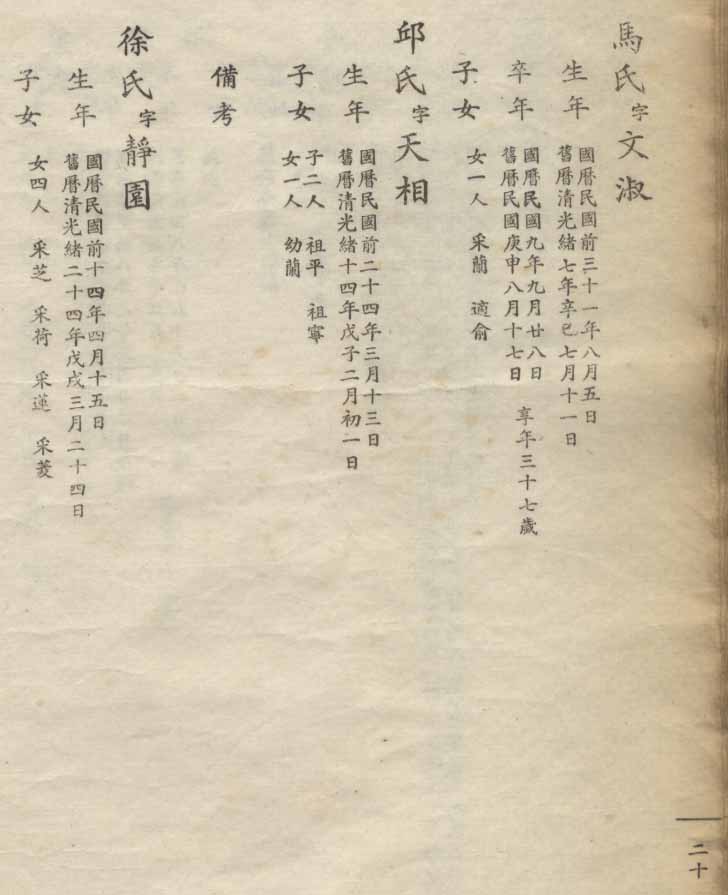 馬氏字文淑
生年
國曆民國前三十一年八月五日
舊曆清光緒七年辛巳七月十一日
卒年
國曆民國九年九月廿八日
舊曆民國庚申八月十七日
享年三十七歲
子女
女一人 采蘭 適俞
邱氏字天相
生年
國曆民國前二十四年三月十三日
舊曆清光緒十四年戊子二月初一日
子女
子二人 祖平 祖寧
女一人 幼蘭
備考
徐氏字靜園
生年
國曆民國前十四年四月十五日
舊曆清光緒二十四年戊戌三月二十四日
子女
女四人 采芝 采荷 采蓮 采菱
二十